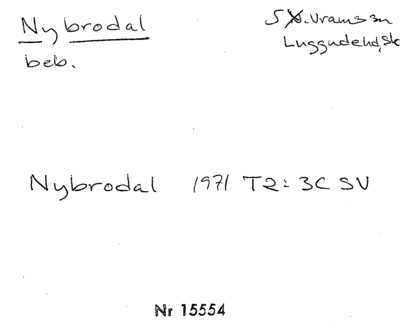 Nybrodal
beb.
S. Vrams sn
Luggude hd, Sk
Nybrodal 1971 T2: 3C SV
Nr 15554